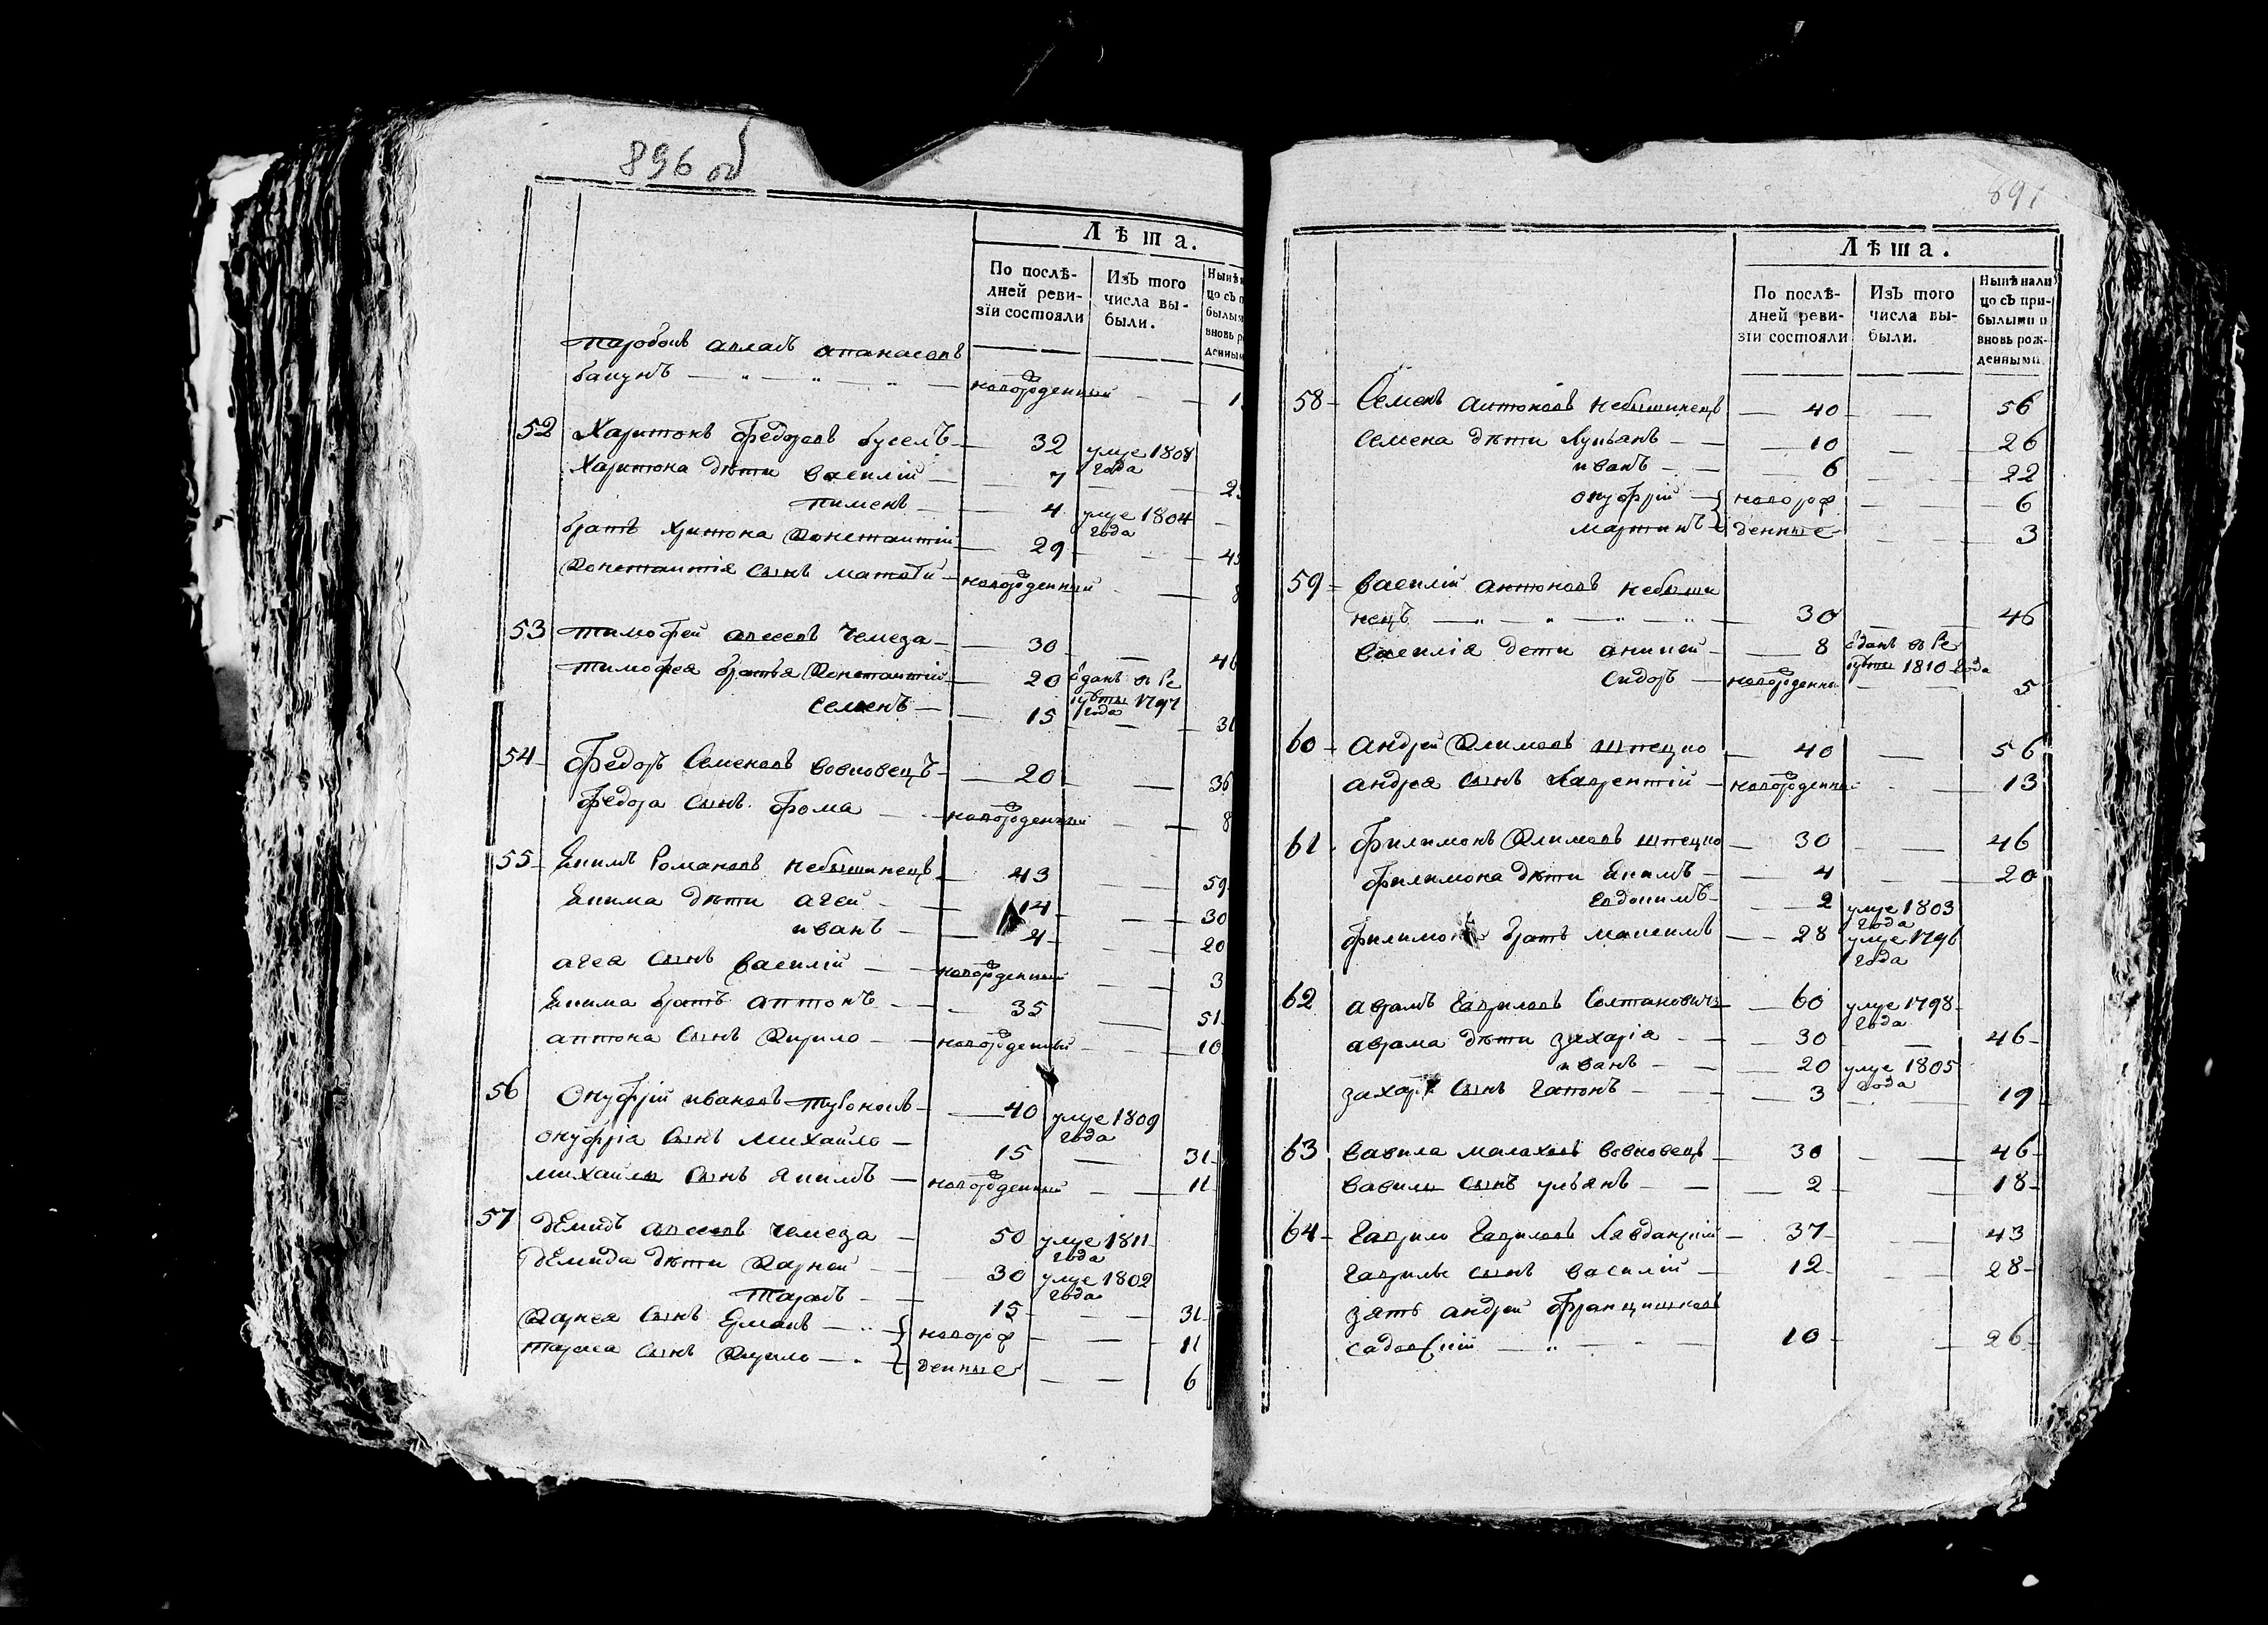 896 об
Лѣта.
По послѣ-
дней реви-
зіи состояли
Изъ того
числа вы-
были.
пасобокъ адамъ апанасовъ
новорожденный
52 Харитонъ Федоровъ бусель 32 умре 1808 года
Харитона дѣти василій 7
пименъ 4 умре 1804 года
братъ Хритона Константій 29
Константія сынъ матвѣй новорожденный 8
53 тимофей авсеевъ чемеза 30 46
тимофея братья Константій 20 отданъ въ рекруты 1797 года
семенъ 15 31
54 Федоръ Семеновъ вовковецъ 20 36
федора сынъ фома новорожденный 8
55 Екимъ Романовъ небышинецъ 43 59
Екима дѣти агей 14 30
иванъ 4 20
агея сынъ василій новорожденный 3
Екима братъ антонъ 35 51
антона сынъ Кирило новорожденный 10
56 Онуфрій ивановъ 40 умре 1809 года
онуфрія сынъ михайло 15 31
михайлы сынъ якимъ новорожденный 11
57 демидъ авсеевъ чемеза 50 умре 1811 года
демида дѣти Карней 30 умре 1802 года
тарасъ 15 31
Карнея сынъ Ермакъ новорож 11
тараса сынъ Кирило денные 6
897
Лѣта.
По послѣ-
дней реви-
зіи состояли
Изъ того
числа вы-
были.
Нынѣ нали
цо съ при-
былыми и
вновь рож-
денными.
58 Семенъ антоновъ небышинецъ 40 56
семена дѣти Лукьянъ 10 26
иванъ 6 22
онуфрій новорож 6
мартинъ денные 3
59 василій антоновъ небыши
нецъ 30 46
василія дети аникей 8 отданъ въ рекруты 1810 года
сидоръ новорожденный 5
60 андрей Климовъ шпецко 40 56
андрея сынъ Лаврентій новорожденный 13
61 филимонъ Климовъ шпецко 30 46
филимона дѣти Якимъ 4 20
евдокимъ 2 умре 1803 года
филимона братъ максимъ 28 умре 1796 года
62 аврамъ гавриловъ Солтановичъ 60 умре 1798 года
аврама дѣти захарія 30 46
иванъ 20 умре 1805 года
захаря сынъ гапонъ 3 19
63 вавила малаховъ вовковецъ 30 46
вавилы сынъ ульянъ 2 18
64 гаврило гавриловъ Лявданскій 37 43
гаврилы сынъ василій 12 28
зять андрей францишковъ
садовскій 10 26